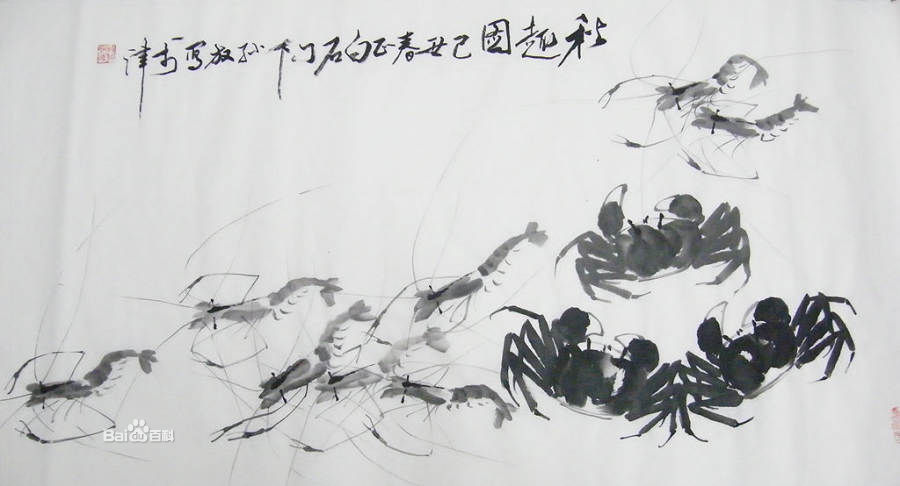 秋趣图己丑春正白石门下孙写于津
Bai百科